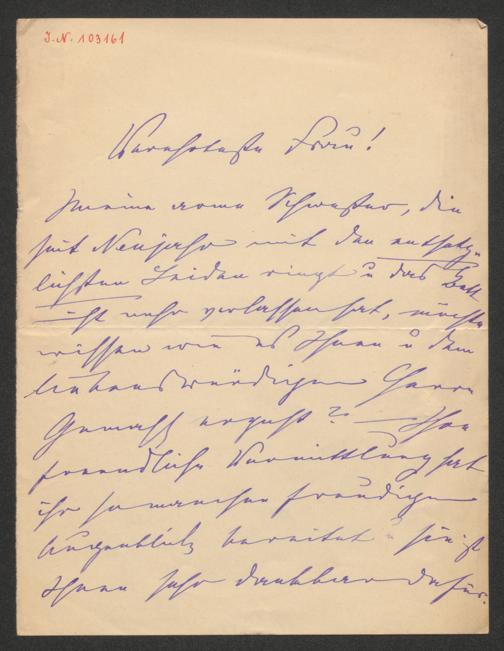 J.N. 103161
Verehrteste Frau!
Meine arme Schwester, die
seit Neujahr mit den entsetz-
lichsten Leiden ringt u das Bett
nicht mehr verlassen hat, möchte
wissen wie es Ihnen u dem
liebenswürdigen Herrn
Gemahl ergeht? — Ihre
freundliche Vermittlung hat
ihr so manchen freudigen
Augenblick bereitet u sie ist
Ihnen sehr dankbar dafür.